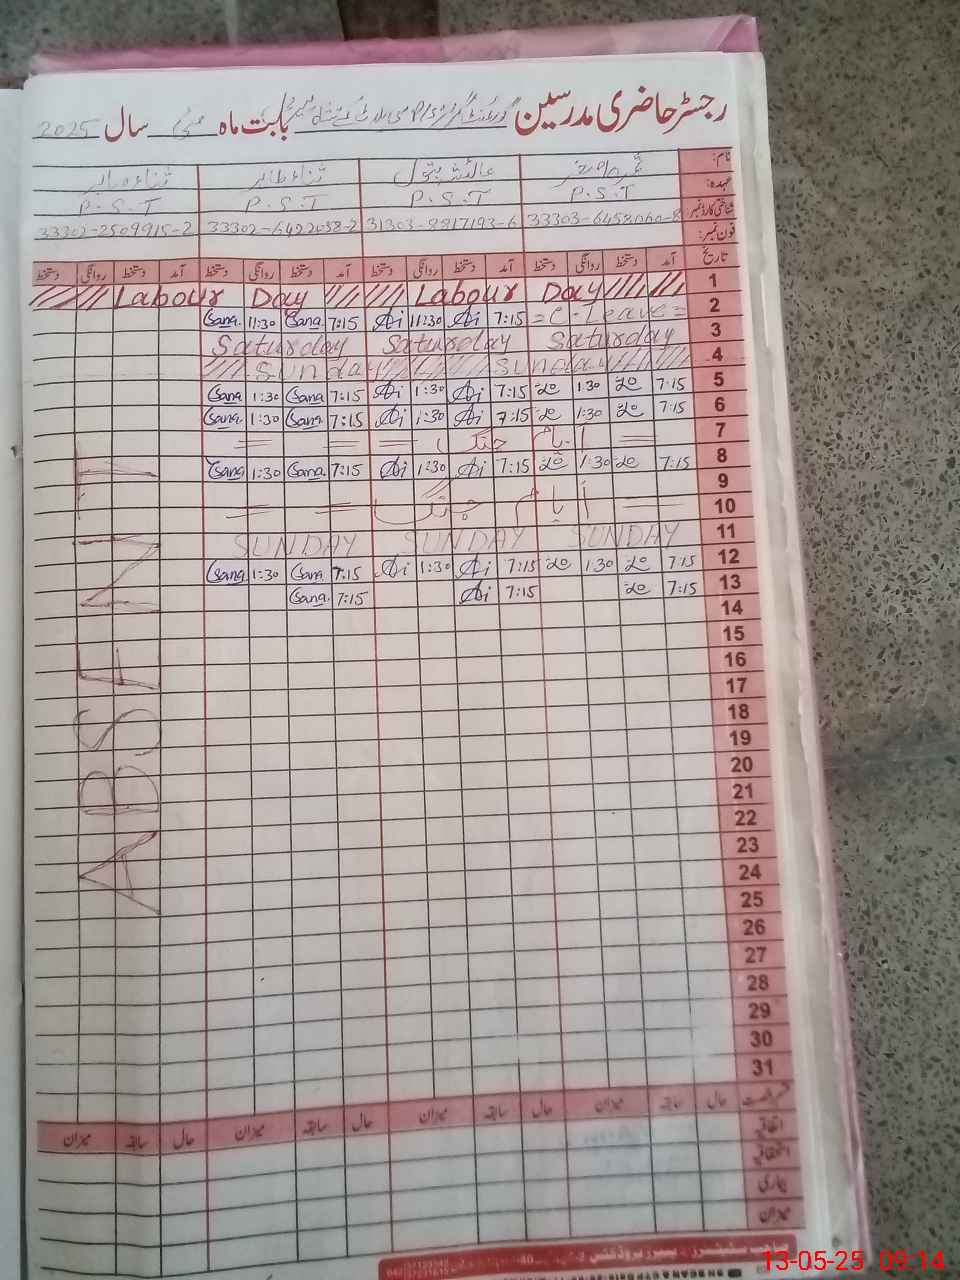 رجسٹر حاضری مدرسین گورنمنٹ گرلز بابت ماہ مئی سال 2025
نام:
عہدہ: P.S.T P.S.T P.S.T P.S.T
شناختی کارڈ نمبر 33303-6458060-8 31303-8817193-6 33302-6422038-2 33302-2509915-2
فون نمبر:
تاریخ آمد دستخط روانگی دستخط آمد دستخط روانگی دستخط آمد دستخط روانگی دستخط آمد دستخط روانگی دستخط
1 Labour Day Labour Day
2 Sana. 11:30 Sana. 7:15 Ai 11:30 Ai 7:15 = C-Leave =
3 Saturday Saturday Saturday
4 Sunday Sunday
5 Sana 1:30 Sana 7:15 Ai 1:30 Ai 7:15 1:30 7:15
6 Sana. 1:30 Sana. 7:15 Ai 1:30 Ai 7:15 1:30 7:15
7 ایام جنگ
8 Sana 1:30 Sana. 7:15 Ai 1:30 Ai 7:15 1:30 7:15
9
10 ایام جنگ
11 SUNDAY SUNDAY SUNDAY
12 Sana. 1:30 Sana 7:15 Ai 1:30 Ai 7:15 1:30 7:15
13 Sana. 7:15 Ai 7:15 7:15
14
15
16
17
18
19
20
21
22
23
24
25
26
27
28
29
30
31
ABSENT
حال سابقہ میزان حال سابقہ میزان حال سابقہ میزان حال سابقہ میزان
اتفاقیہ
استحقاقیہ
بیماری
میزان
13-05-25 09:14